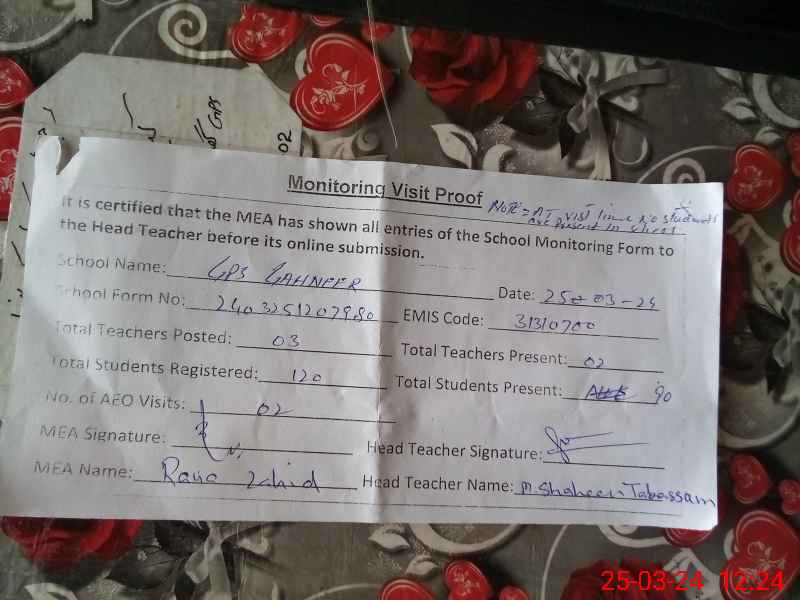 Monitoring Visit Proof
Note = AT visit time no students
are present in school
It is certified that the MEA has shown all entries of the School Monitoring Form to
the Head Teacher before its online submission.
School Name: GPS Date: 25-03-24
School Form No: 2403251207980 EMIS Code: 31310700
Total Teachers Posted: 03 Total Teachers Present: 02
Total Students Registered: 120 Total Students Present: 90
No. of AEO Visits: 02
MEA Signature: Head Teacher Signature:
MEA Name: Rana Zahid Head Teacher Name: M. Shaheen Tabassam
02
25-03-24 12:24